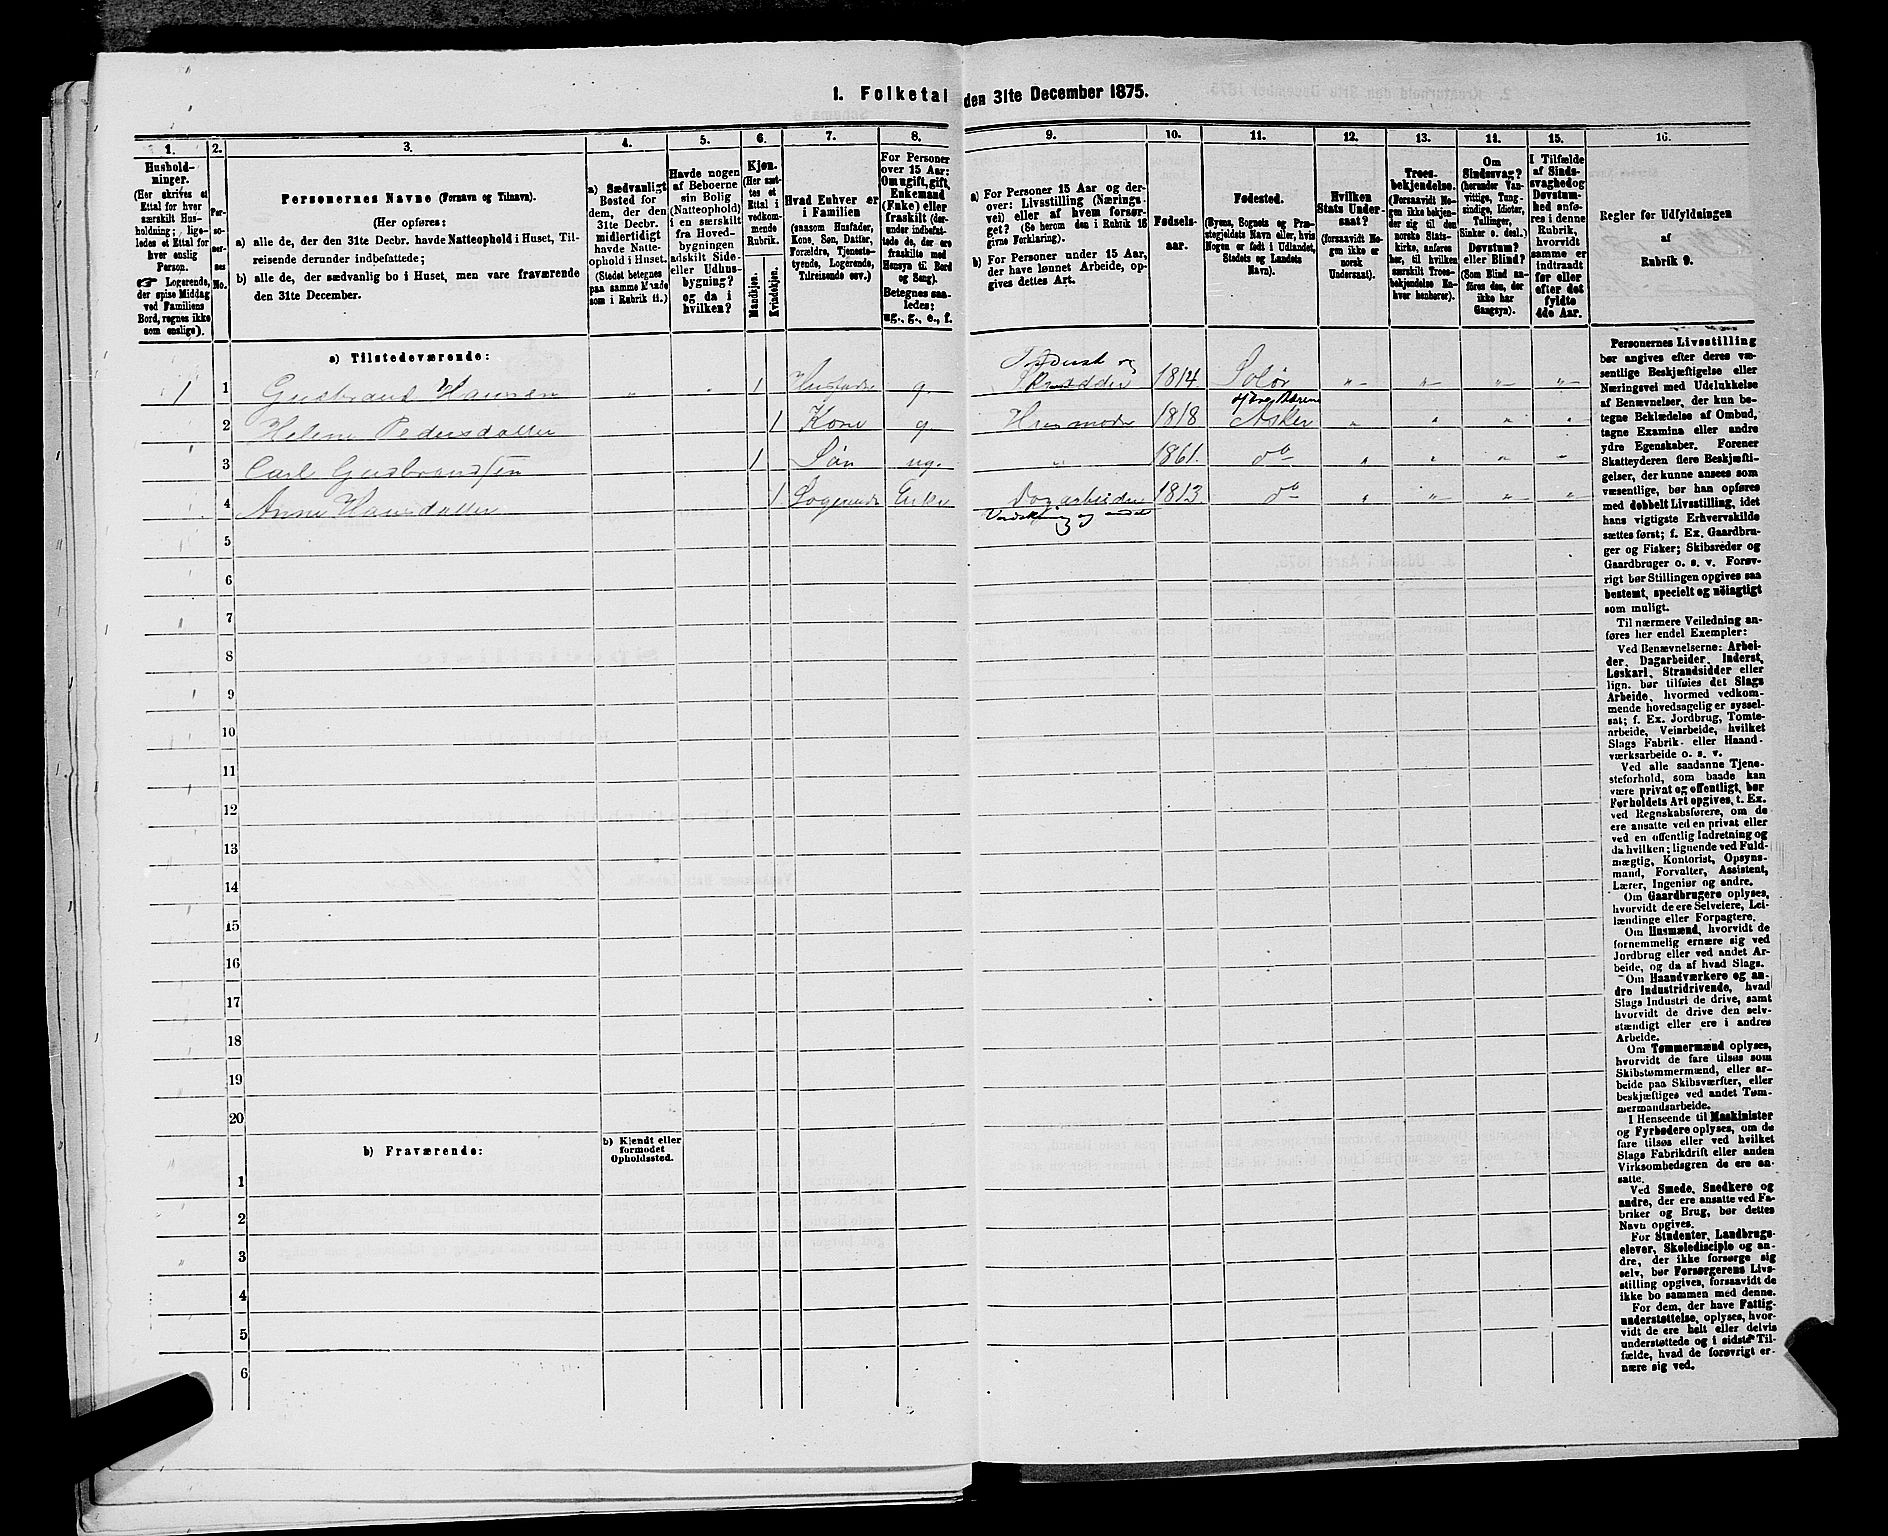 1. Folketal den 31te December 1875.
1. 2. 3. 4. 5. 6. 7. 8. 9. 10. 11. 12. 13. 14. 15. 16.
Hushold-
ninger.
(Her skrives et
Ettal for hver
særskilt Hus-
holdning; lige-
ledes et Ettal for
hver enslig
Person.
☞ Logerende,
der spise Middag
ved Familiens
Bord, regnes ikke
som enslige).
Per-
so-
ner-
nes
No.
Personernes Navne (Fornavn og Tilnavn).
(Her opføres:
a) alle de, der den 31te Decbr. havde Natteophold i Huset, Til-
reisende derunder indbefattede;
b) alle de, der sædvanlig bo i Huset, men vare fraværende
den 31te December.
a) Sædvanligt
Bosted for
dem, der den
31te Decbr.
midlertidigt
havde Natte-
ophold i Huset.
(Stedet betegnes
paa samme Maade
som i Rubrik 11.)
Havde nogen
af Beboerne
sin Bolig
(Natteophold)
i en særskilt
fra Hoved-
bygningen
adskilt Side-
eller Udhus-
bygning?
og da i
hvilken?
Kjøn.
(Her sæt-
tes et
Ettal i
vedkom-
mende
Rubrik.
Mandkjøn.
Kvindekjøn.
Hvad Enhver er
i Familien
(saasom Husfader,
Kone, Søn, Datter,
Forældre, Tjeneste-
tyende, Logerende,
Tilreisende osv.)
For Personer
over 15 Aar:
Om ugift, gift,
Enkemand
(Enke) eller
fraskilt (der-
under indbefat-
tede de, der ere
fraskilte med
Hensyn til Bord
og Seng).
Betegnes saa-
ledes:
ug., g., e., f.
a) For Personer 15 Aar og der-
over: Livsstilling (Nærings-
vei) eller af hvem forsør-
get? (Se herom den i Rubrik 16
givne Forklaring).
b) For Personer under 15 Aar,
der have lønnet Arbeide, op-
gives dettes Art.
Fødsels-
aar.
Fødested.
(Byens, Sognets og Præ-
stegjeldets Navn eller, hvis
Nogen er født i Udlandet,
Stedets og Landets
Navn).
Hvilken
Stats Under-
saat?
(forsaavidt No-
gen ikke er
norsk
Undersaat).
Troes-
bekjendelse.
(Forsaavidt No-
gen ikke bekjen-
der sig til den
norske Stats-
kirke, anføres
her, til hvilken
særskilt Troes-
bekjendelse En-
hver henhører).
Om
Sindssvag?
(herunder Van-
vittige, Tung-
sindige, Idioter,
Tullinger,
Sinker o. desl.).
Døvstum?
eller Blind?
(Som Blind an-
føres den, der
ikke har
Gangsyn).
I Tilfælde
af Sinds-
svaghed og
Døvstum-
hed anfø-
res i denne
Rubrik,
hvorvidt
samme er
indtraadt
før eller
efter det
fyldte
4de Aar.
Regler for Udfyldningen
af
Rubrik 9.
a) Tilstedeværende:
1 1 Gudbrand Hansen „ „ 1 Husfader g. 1814 Solør „ „ „ „
2 Helene Pedersdatter 1 Kone g Husmoder 1818 Asker „ „ „ „
3 Carl Gudbrandsen 1 Søn ug. „ 1861. do „ „ „ „
4 Anne Hansdatter 1 Logerende Enke Dagarbeider 1813 do „ „ „ „
5
6
7
8
9
10
11
12
13
14
15
16
17
18
19
20
b) Fraværende:
b) Kjendt eller
formodet
Opholdssted.
1
2
3
4
5
6
Personernes Livsstilling
bør angives efter deres væ-
sentlige Beskjæftigelse eller
Næringsvei med Udelukkelse
af Benævnelser, der kun be-
tegne Beklædelse af Ombud,
tagne Examina eller andre
ydre Egenskaber. Forener
Skatteyderen flere Beskjæfti-
gelser, der kunne ansees som
væsentlige, bør han opføres
med dobbelt Livsstilling, idet
hans vigtigste Erhvervskilde
sættes først; f. Ex. Gaardbru-
ger og Fisker; Skibsreder og
Gaardbruger o. s. v. Forøv-
rigt bør Stillingen opgives saa
bestemt, specielt og nøiagtigt
som muligt.
Til nærmere Veiledning an-
føres her endel Exempler:
Ved Benævnelserne: Arbei-
der, Dagarbeider, Inderst,
Løskarl, Strandsidder eller
lign. bør tilføies det Slags
Arbeide, hvormed vedkom-
mende hovedsagelig er syssel-
sat; f. Ex. Jordbrug, Tomte-
arbeide, Veiarbeide, hvilket
Slags Fabrik- eller Haand-
værksarbeide o. s. v.
Ved alle saadanne Tjene-
steforhold, som baade kan
være privat og offentligt, bør
Forholdets Art opgives, t. Ex.
ved Regnskabsførere, om de
ere ansatte ved en privat eller
ved en offentlig Indretning og
da hvilken; lignende ved Fuld-
mægtig, Kontorist, Opsyns-
mand, Forvalter, Assistent,
Lærer, Ingeniør og andre.
Om Gaardbrugere oplyses,
hvorvidt de ere Selveiere, Lei-
lændinge eller Forpagtere.
Om Husmænd, hvorvidt de
fornemmelig ernære sig ved
Jordbrug eller ved andet Ar-
beide, og da af hvad Slags.
Om Haandværkere og an-
dre Industridrivende, hvad
Slags Industri de drive, samt
hvorvidt de drive den selv-
stændigt eller ere i andres
Arbeide.
Om Tømmermænd oplyses,
hvorvidt de fare tilsøs som
Skibstømmermænd, eller ar-
beide paa Skibsværfter, eller
beskjæftiges ved andet Tøm-
mermandsarbeide.
I Henseende til Maskinister
og Fyrbødere oplyses, om de
fare tilsøs eller ved hvilket
Slags Fabrikdrift eller anden
Virksombedsgren de ere an-
satte.
Ved Smede, Snedkere og
andre, der ere ansatte ved Fa-
briker og Brug, bør dettes
Navn opgives.
For Studenter, Landbrugs-
elever, Skoledisciple og an-
dre, der ikke forsørge sig
selv, bør Forsørgerens Livs-
stilling opgives, forsaavidt de
ikke bo sammen med denne.
For dem, der have Fattig-
understøttelse, oplyses, hvor-
vidt de ere helt eller delvis
understøttede og i sidste Til-
fælde, hvad de forøvrigt er-
nære sig ved.